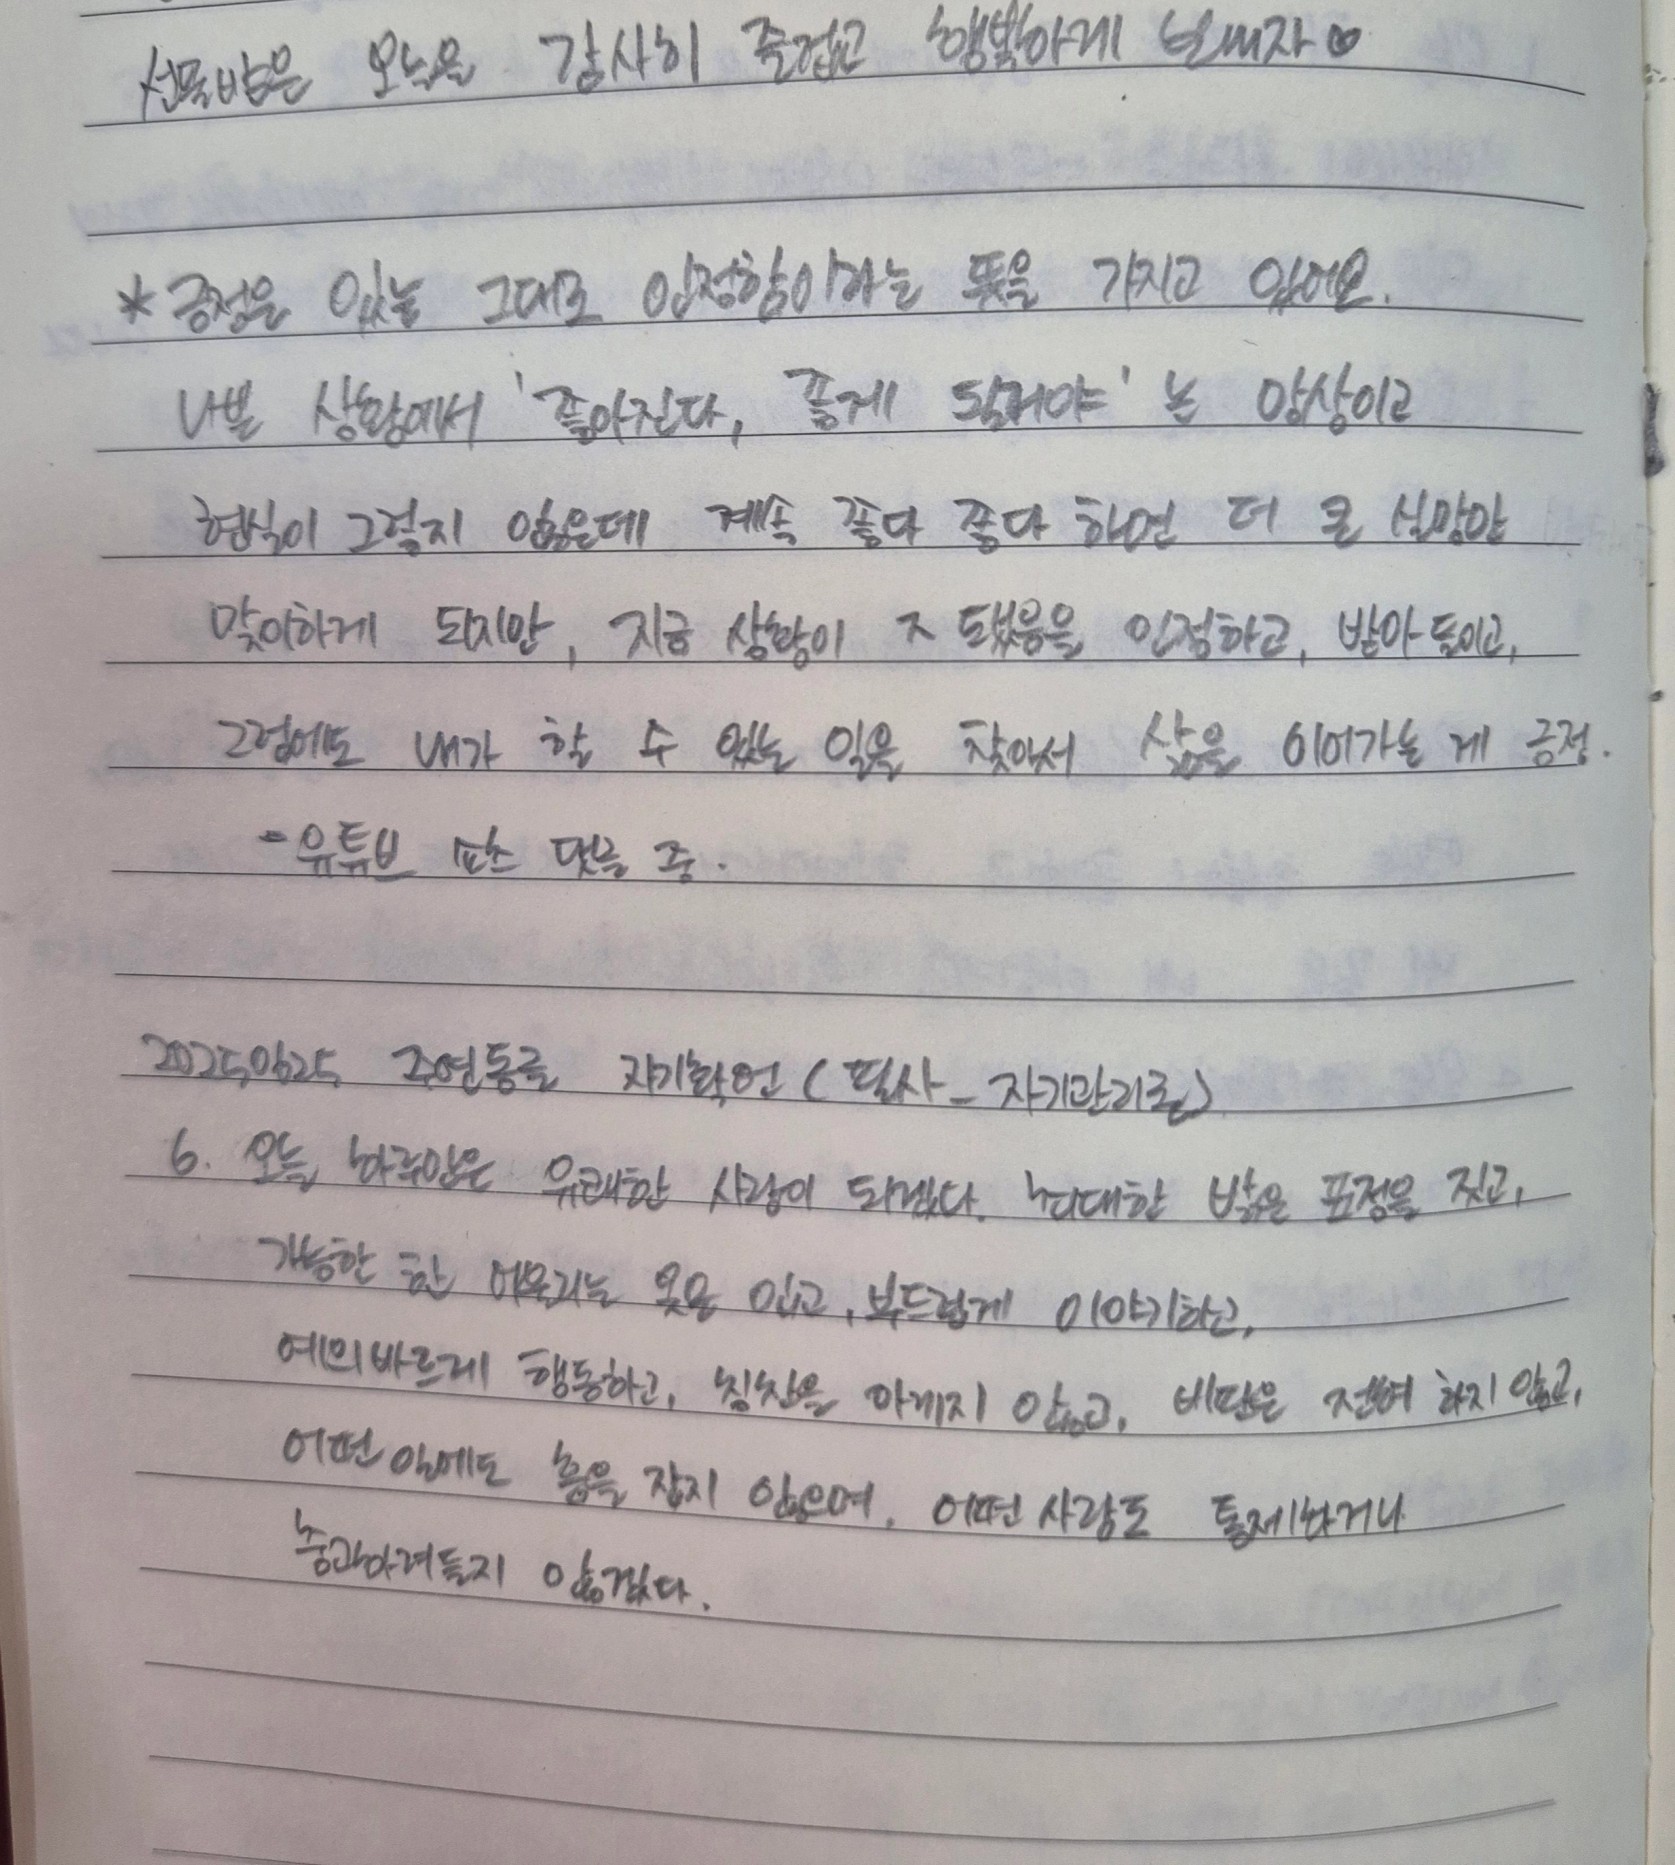 선물받은 오늘을 감사히 즐겁고 행복하게 보내자♡
* 긍정은 있는 그대로 인정함이라는 뜻을 가지고 있어요.
나쁜 상황에서 '좋아진다, 좋게 될거야' 는 망상이고
현실이 그렇지 않은데 계속 좋다 좋다 하면 더 큰 실망만
맞이하게 되지만, 지금 상황이 ㅈ됐음을 인정하고, 받아들이고,
그럼에도 내가 할 수 있는 일을 찾아서 삶을 이어가는 게 긍정.
- 유튜브 쇼츠 댓글 중.
20250625 자기확언 (필사_자기관리론)
6. 오늘 하루만은 유쾌한 사람이 되겠다. 최대한 밝은 표정을 짓고,
가능한 한 어울리는 옷을 입고, 부드럽게 이야기하고,
예의바르게 행동하고, 칭찬을 아끼지 않고, 비판은 전혀 하지 않고,
어떤 일에도 흠을 잡지 않으며, 어떤 사람도 통제하거나
충고하려들지 않겠다.